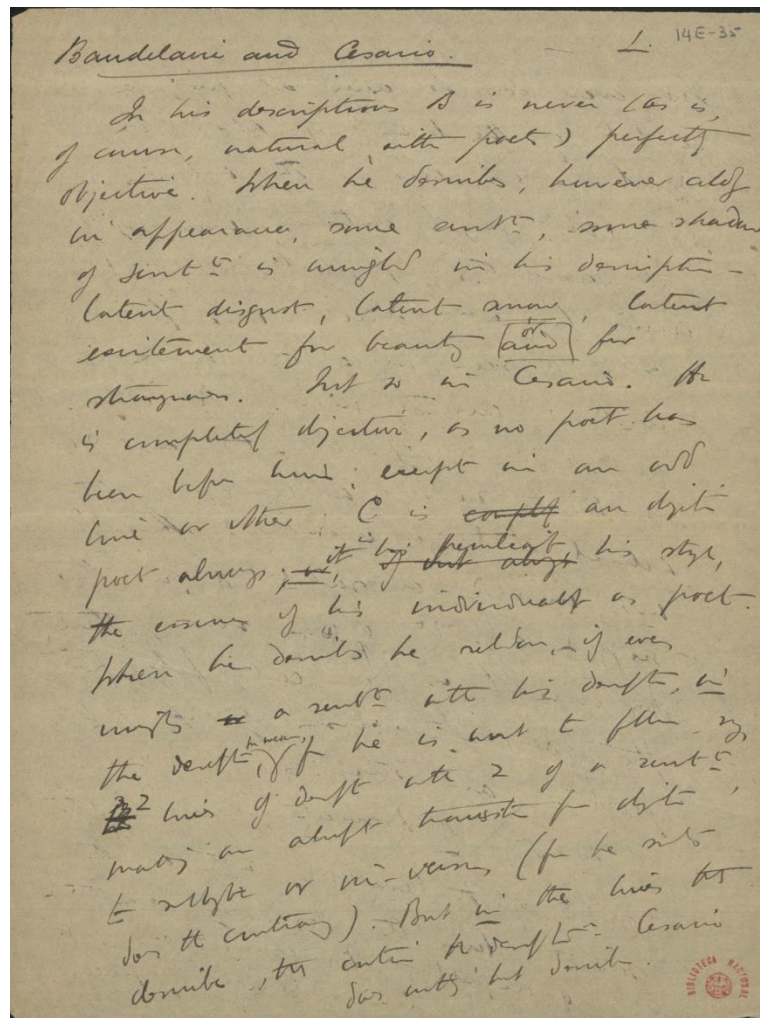 Baudelaire and Cesario.
1.
14E-35
In his descriptions B is never (as is,
of course, natural with poets) perfectly
objective. When he describes, however coldly
in appearance, some sentt, some shadow
of sentt is mingled in his description —
latent disgust, latent sorrow, latent
excitement for beauty [and] for
or
strangeness. Not so in Cesario. He
is completely objective, as no poet has
been before him, except in an odd
line or other; C is compl an objective
poet always;
it is his peculiarity, his style,
the essence of his individuality as poet.
When he describes he seldom, if ever
mingles a sentt with his description, in
the description, I mean, for he is wont to follow say
2 lines of description with 2 of a sentt,
making an abrupt transition from objective
to subjective or vice-versa (for he sometimes
does the contrary). But in the lines that
describe, that contain the description Cesario
does nothing but describe.
BIBLIOTECA NACIONAL